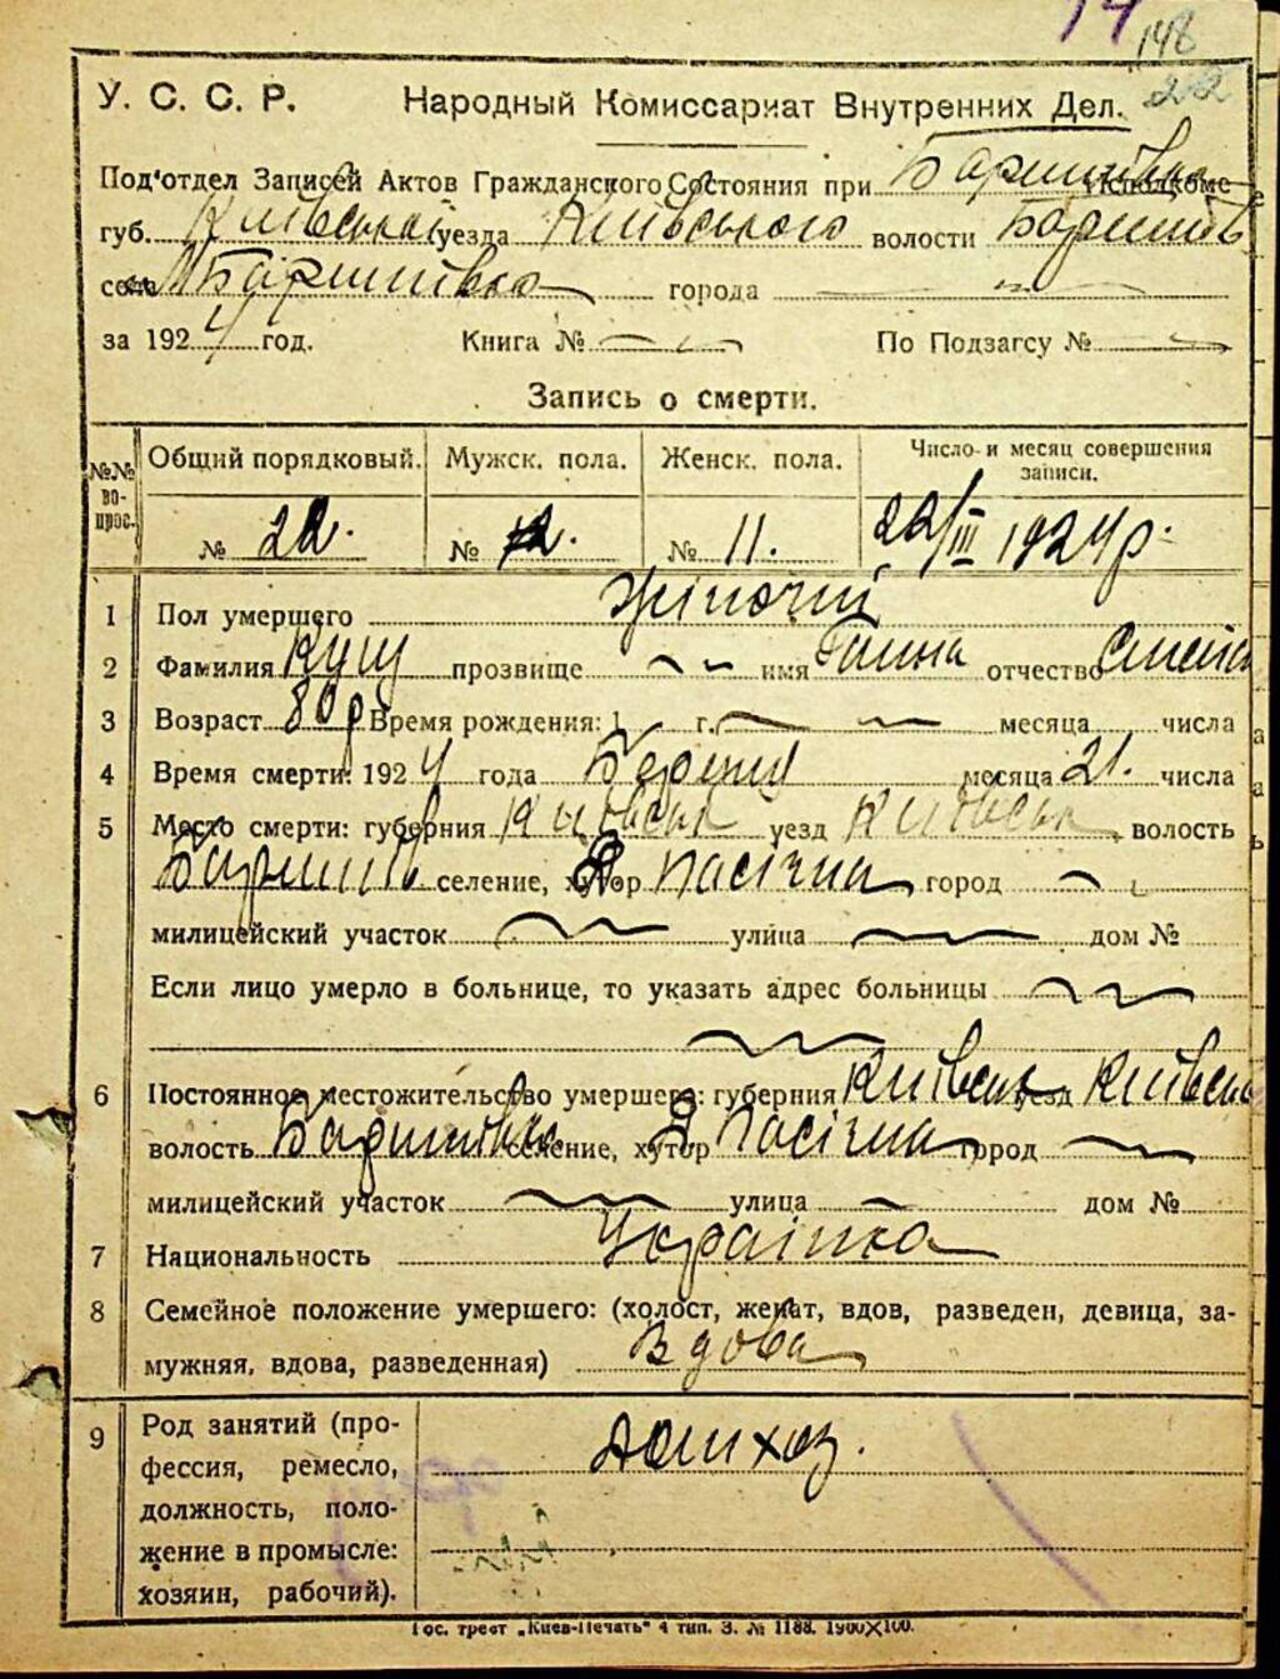 14 148
22
У. С. С. Р. Народный Комиссариат Внутренних Дел.
Под'отдел Записей Актов Гражданского Состояния при Баришівка Исполкоме
губ. Київської уезда Київського волости Баришів
села М Баришівка города
за 1924 год. Книга № По Подзагсу №
Запись о смерти.
№№ вопрос. Общий порядковый. Мужск. пола. Женск. пола. Число и месяц совершения записи.
№ 22. № № 11. 22/III 1924 р.
1 Пол умершего Жіночий
2 Фамилия Кущ прозвище имя Ганна отчество
3 Возраст 80 р Время рождения: 1 г. месяца числа
4 Время смерти: 1924 года Березня месяца 21. числа
5 Место смерти: губерния Київськ уезд Київськ волость
Баришів селение, хутор Пасічна город
милицейский участок улица дом №
Если лицо умерло в больнице, то указать адрес больницы
6 Постоянное местожительство умершего: губерния Київськ уезд Київськ
волость Баришівка селение, хутор Пасічна город
милицейский участок улица дом №
7 Национальность Українка
8 Семейное положение умершего: (холост, женат, вдов, разведен, девица, за-
мужняя, вдова, разведенная) Вдова
9 Род занятий (про-
фессия, ремесло, Домхоз.
должность, поло-
жение в промысле:
хозяин, рабочий).
Гос. трест „Киев-Печать" 4 тип. З. № 1188. 1900×100.